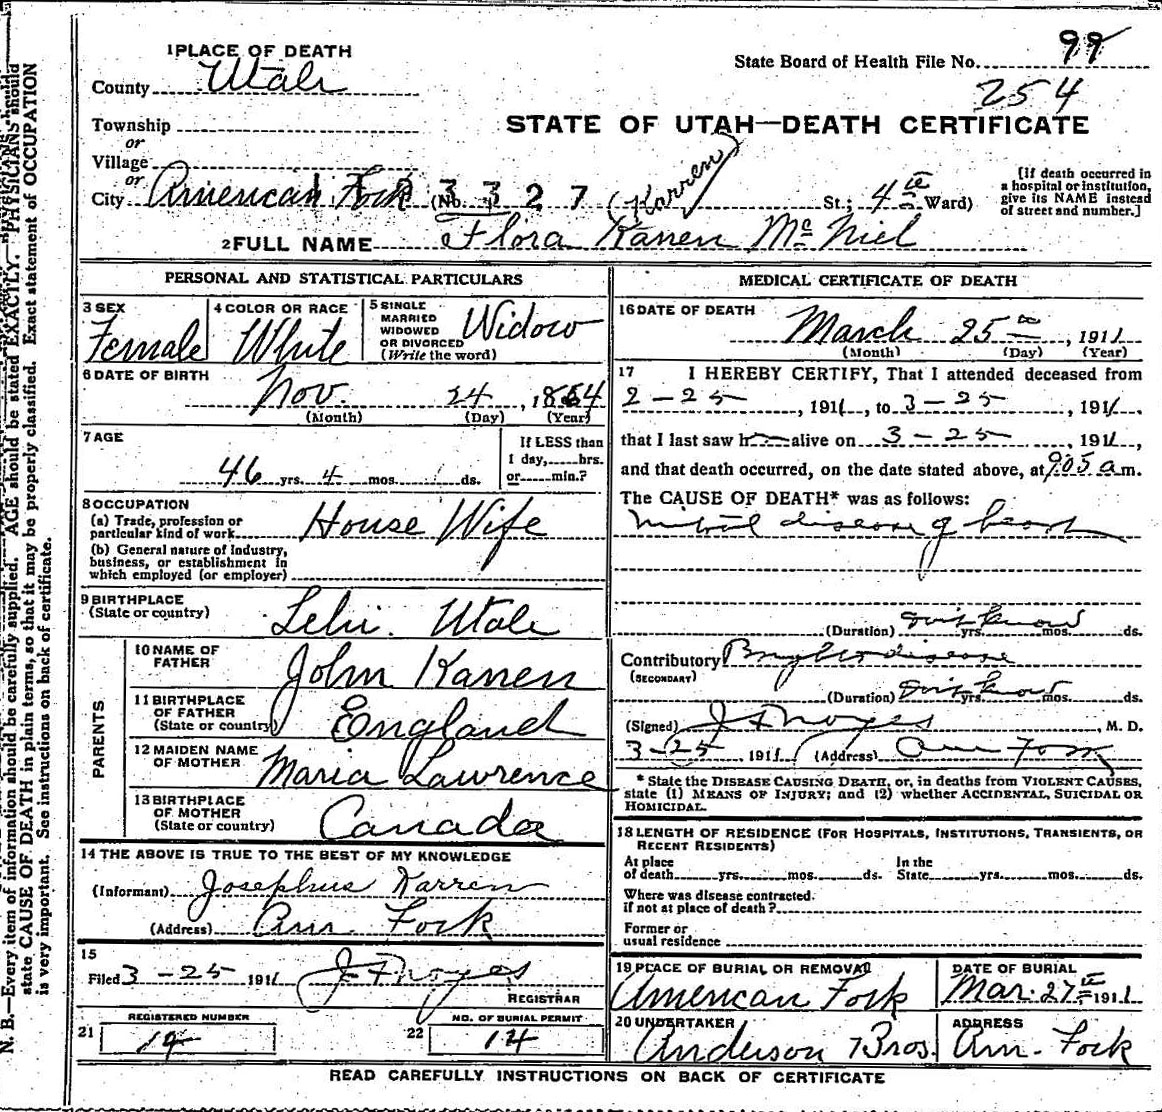 1 PLACE OF DEATH
County Utah
State Board of Health File No. 99
254
Township
or
Village
or
City American Fork
STATE OF UTAH—DEATH CERTIFICATE
(No. 3 3 2 7 (Karren) St.; 4th Ward)
[If death occurred in a hospital or institution, give its NAME instead of street and number.]
2 FULL NAME Flora Karren McNiel
PERSONAL AND STATISTICAL PARTICULARS
3 SEX Female
4 COLOR OR RACE White
5 SINGLE MARRIED WIDOWED OR DIVORCED (Write the word) Widow
6 DATE OF BIRTH Nov. 24, 1864
(Month) (Day) (Year)
7 AGE 46 yrs. 4 mos. 1 ds.
If LESS than 1 day,.....hrs. or.....min.?
8 OCCUPATION
(a) Trade, profession or particular kind of work House Wife
(b) General nature of industry, business, or establishment in which employed (or employer)
9 BIRTHPLACE (State or country) Lehi. Utah
PARENTS
10 NAME OF FATHER John Karren
11 BIRTHPLACE OF FATHER (State or country) England
12 MAIDEN NAME OF MOTHER Maria Lawrence
13 BIRTHPLACE OF MOTHER (State or country) Canada
14 THE ABOVE IS TRUE TO THE BEST OF MY KNOWLEDGE
(Informant) Josephus Karren
(Address) Am. Fork
15
Filed 3-25 1911 J F Noyes
REGISTRAR
21 REGISTERED NUMBER 14
22 NO. OF BURIAL PERMIT 14
MEDICAL CERTIFICATE OF DEATH
16 DATE OF DEATH
March 25th, 1911
(Month) (Day) (Year)
17 I HEREBY CERTIFY, That I attended deceased from
2-25, 1911, to 3-25, 1911,
that I last saw h alive on 3-25, 1911,
and that death occurred, on the date stated above, at 9.05 a m.
The CAUSE OF DEATH* was as follows:
mitral disease of heart
(Duration) don't know yrs. mos. ds.
Contributory Brights disease
(SECONDARY)
(Duration) don't know yrs. mos. ds.
(Signed) J F Noyes, M. D.
3-25, 1911 (Address) Am Fork
* State the DISEASE CAUSING DEATH, or, in deaths from VIOLENT CAUSES, state (1) MEANS OF INJURY; and (2) whether ACCIDENTAL, SUICIDAL OR HOMICIDAL.
18 LENGTH OF RESIDENCE (FOR HOSPITALS, INSTITUTIONS, TRANSIENTS, OR RECENT RESIDENTS)
At place of death yrs. mos. ds. In the State yrs. mos. ds.
Where was disease contracted. if not at place of death?
Former or usual residence
19 PLACE OF BURIAL OR REMOVAL American Fork
DATE OF BURIAL Mar. 27th 1911
20 UNDERTAKER Anderson Bros.
ADDRESS Am. Fork
READ CAREFULLY INSTRUCTIONS ON BACK OF CERTIFICATE
N. B.—Every item of information should be carefully supplied. AGE should be stated EXACTLY. PHYSICIANS should
state CAUSE OF DEATH in plain terms, so that it may be properly classified. Exact statement of OCCUPATION
is very important. See instructions on back of certificate.